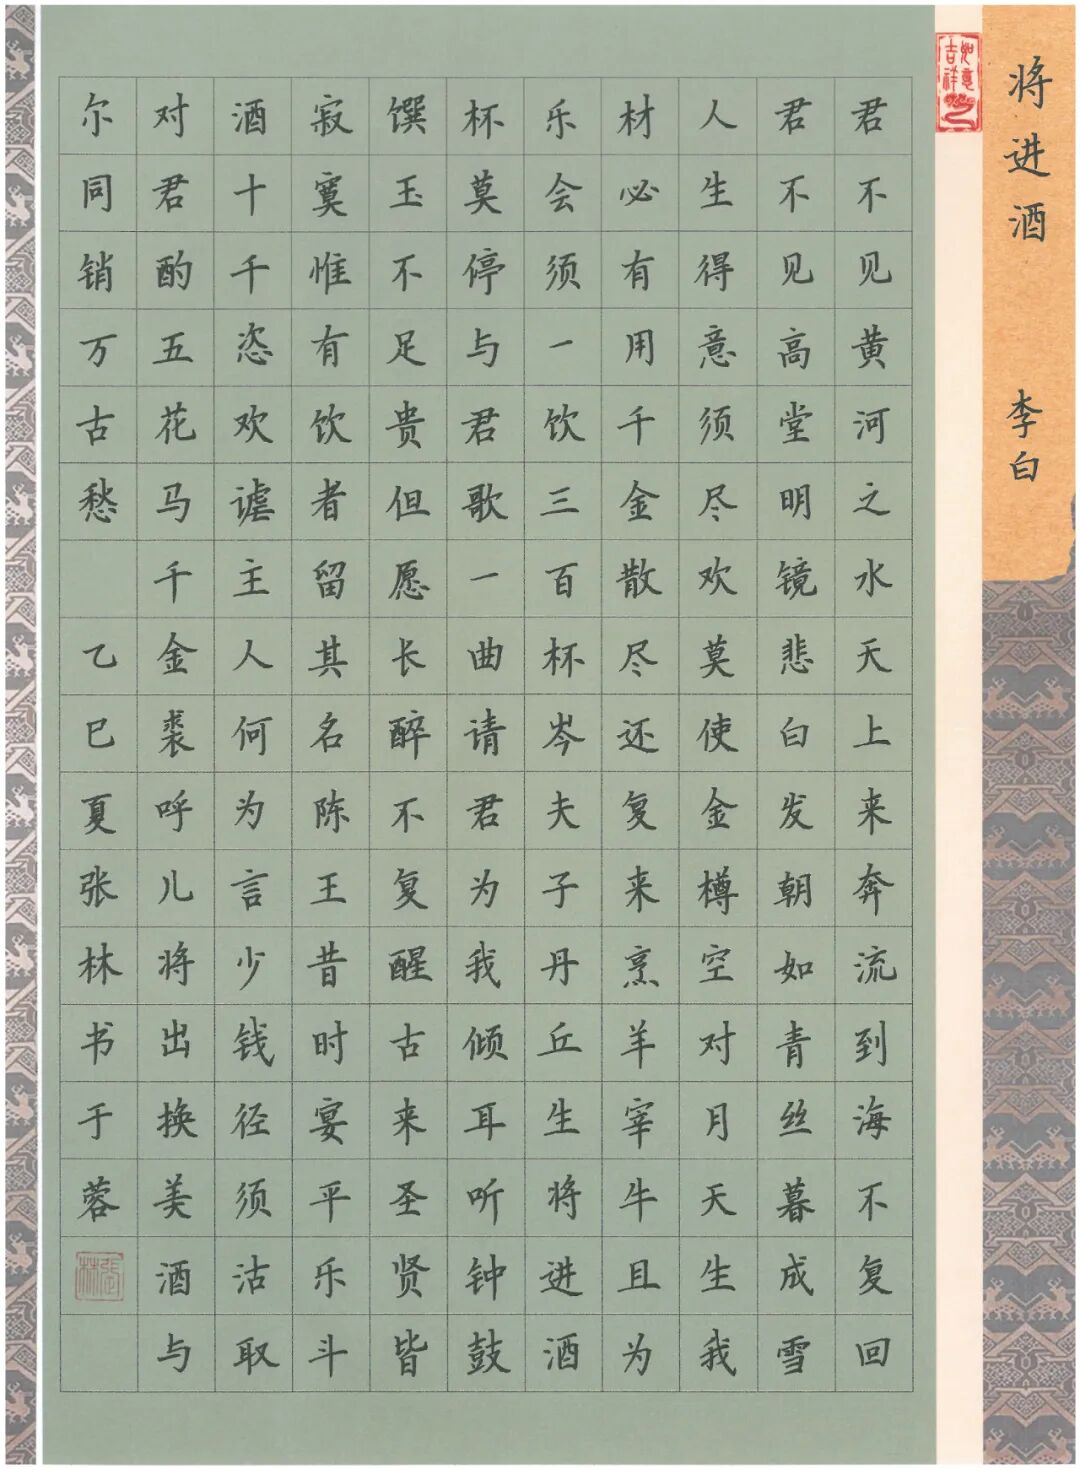 将进酒 李白
吉祥如意
君不见黄河之水天上来奔流到海不复回
君不见高堂明镜悲白发朝如青丝暮成雪
人生得意须尽欢莫使金樽空对月天生我
材必有用千金散尽还复来烹羊宰牛且为
乐会须一饮三百杯岑夫子丹丘生将进酒
杯莫停与君歌一曲请君为我倾耳听钟鼓
馔玉不足贵但愿长醉不复醒古来圣贤皆
寂寞惟有饮者留其名陈王昔时宴平乐斗
酒十千恣欢谑主人何为言少钱径须沽取
对君酌五花马千金裘呼儿将出换美酒与
尔同销万古愁 乙巳夏张林书于蓉
张林